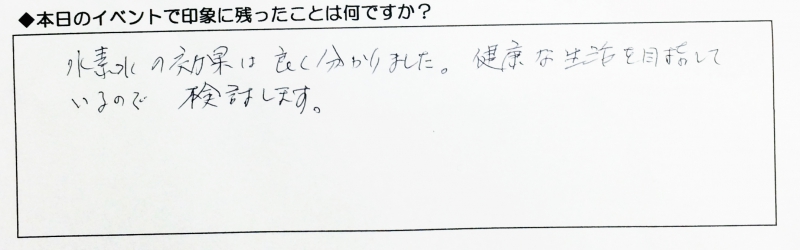 ◆本日のイベントで印象に残ったことは何ですか？
水素水の効果は良く分かりました。健康な生活を目指して
いるので 検討します。